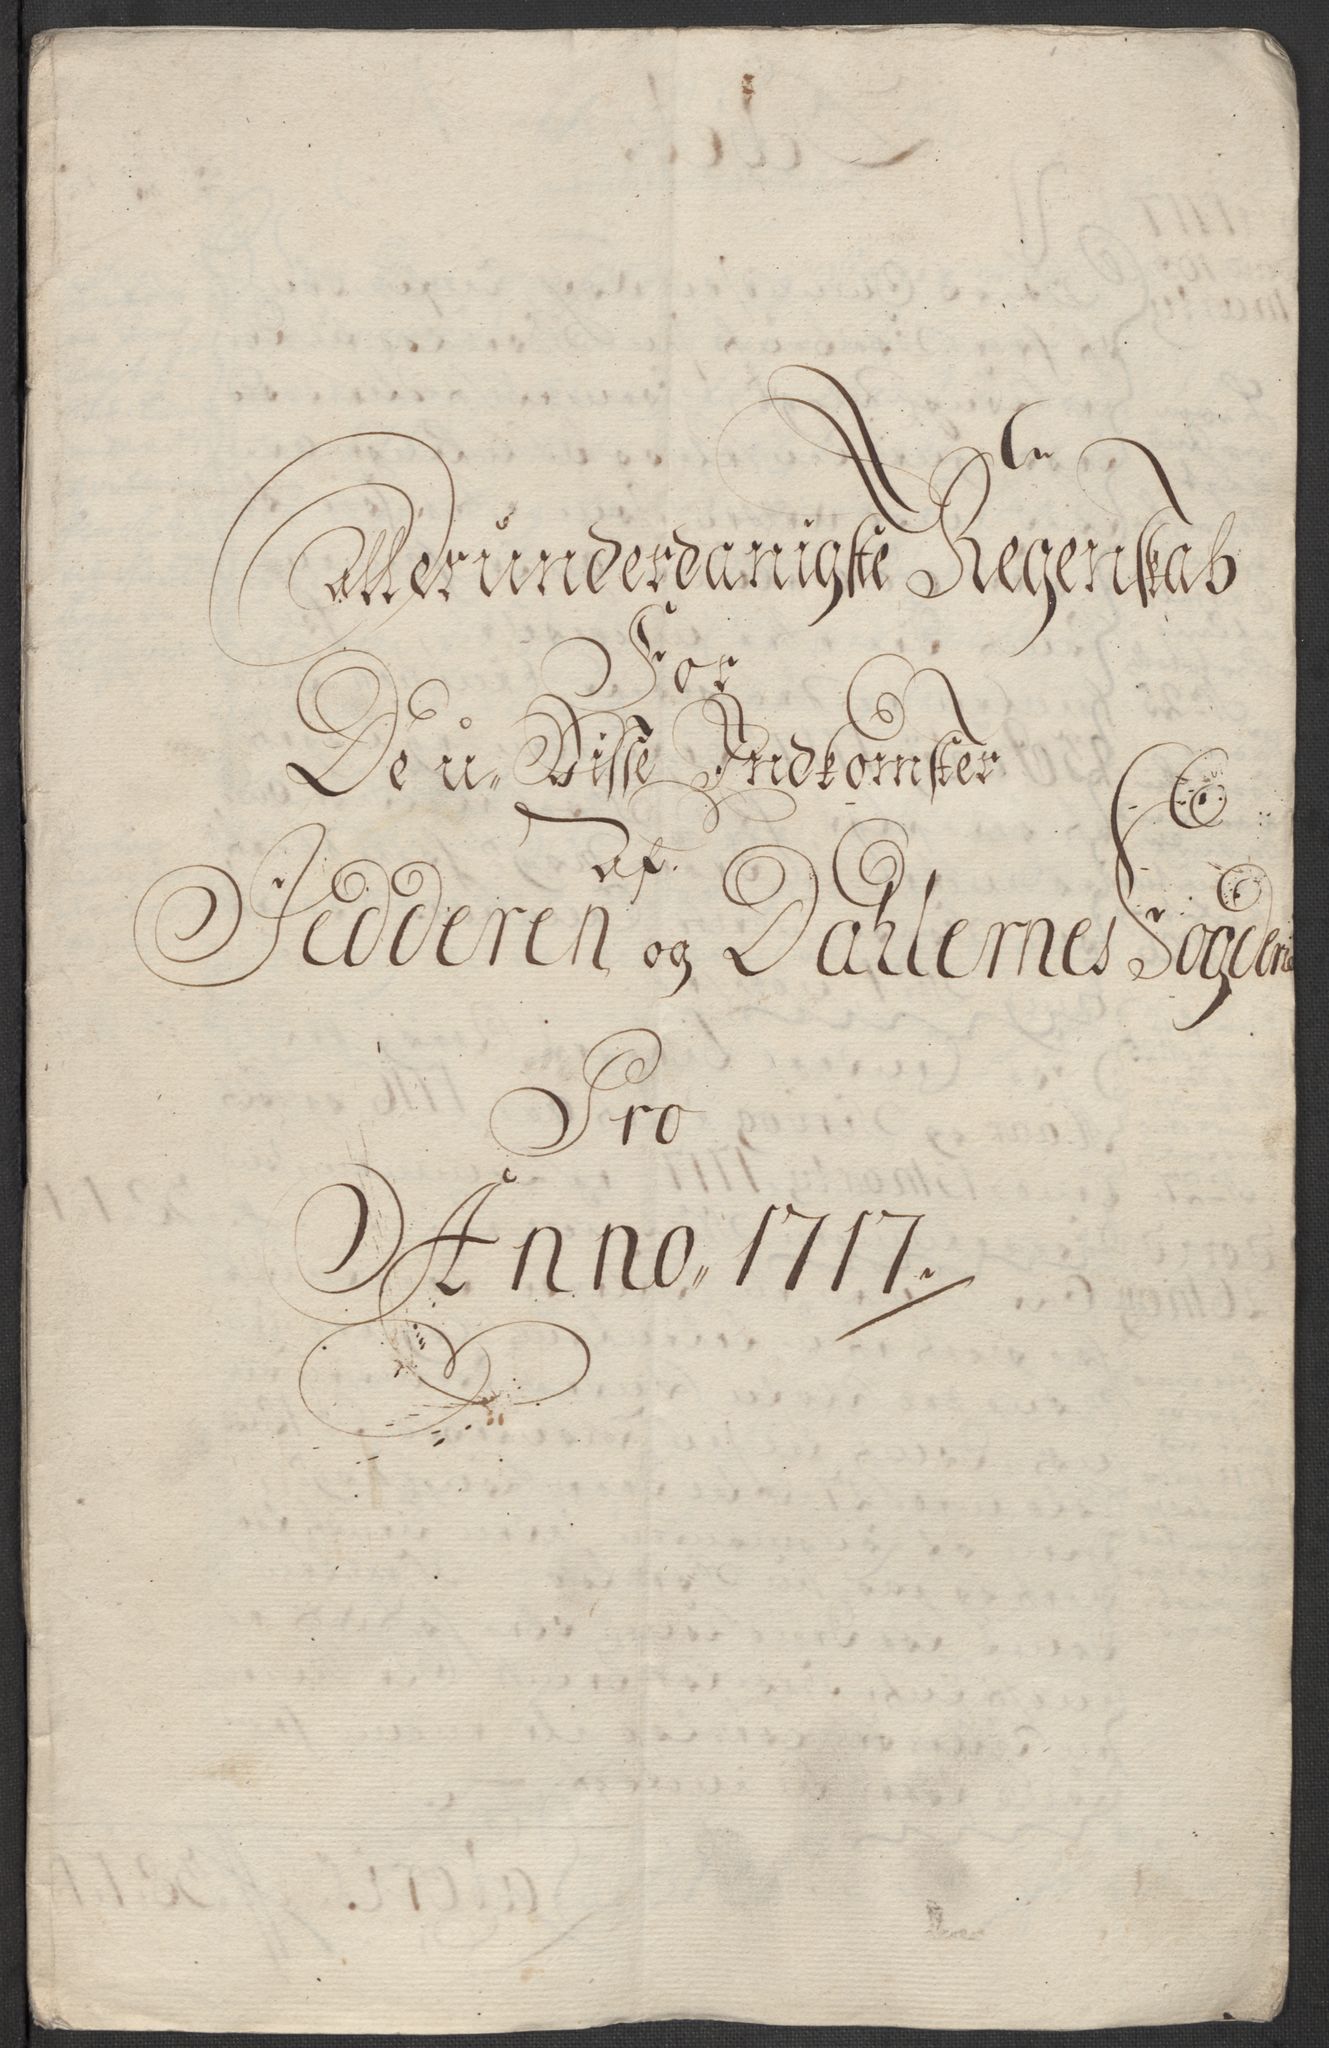 Allerunderdanigste Regenskab
For
De u-Visse Indkomster
af
Jedderen og Dahlernes Fogderie
Pro
Anno 1717.